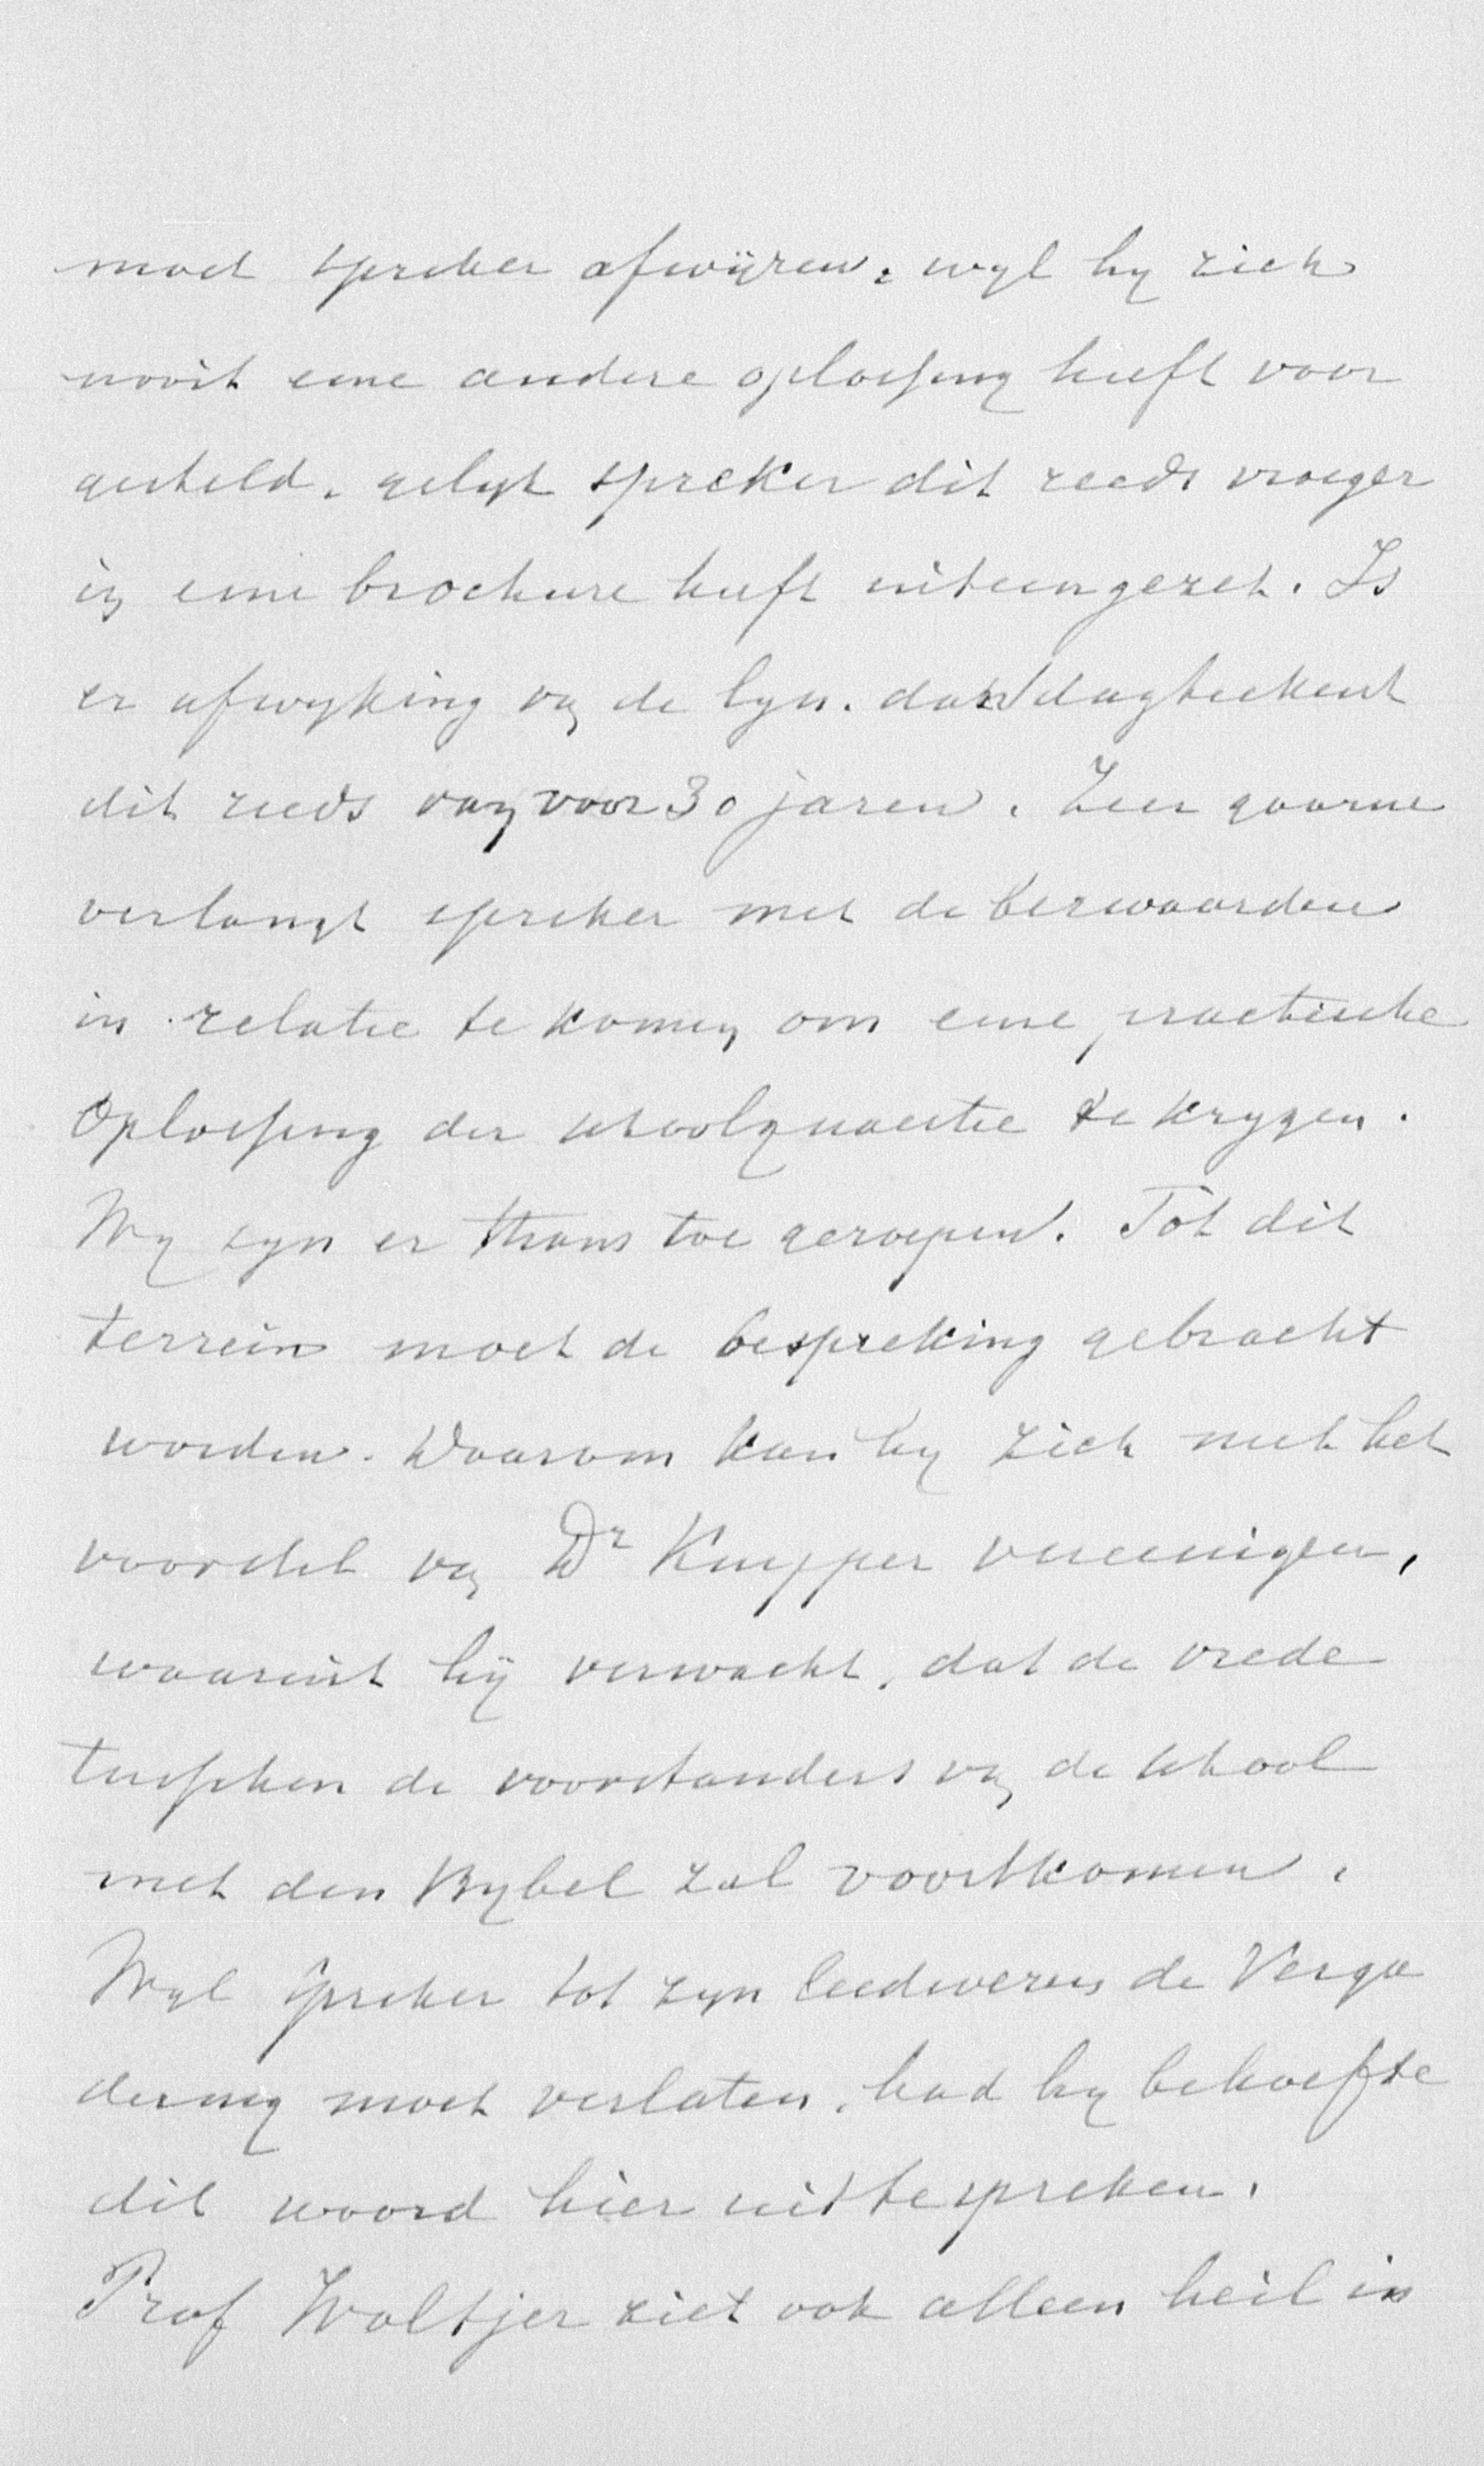 moet spreker afwijzen, wyl hy zich
nooit eene andere oplossing heeft voor
gesteld, gelyk spreker dit reeds vroeger
in eene brochure heeft uiteengezet. Is
er afwyking van de lyn, dan dagteekent
dit reeds van voor 30 jaren. Zeer gaarne
verlangt spreker met de bezwaarden
in relatie te komen om eene practische
Oplossing der schoolquaestie te krygen.
Wy zyn er thans toe geroepen. Tot dit
terrein moet de bespreking gebracht
worden. Daarom kan hy zich met het
voorstel van Dr Kuyper vereenigen,
waaruit hij verwacht, dat de vrede
tusschen de voorstanders van de school
met den Bybel zal voortkomen.
Wyl spreker tot zyn leedwezen de Verga
dering moet verlaten, had hy behoefte
dit woord hier uit te spreken.
Prof Woltjer ziet ook alleen heil in